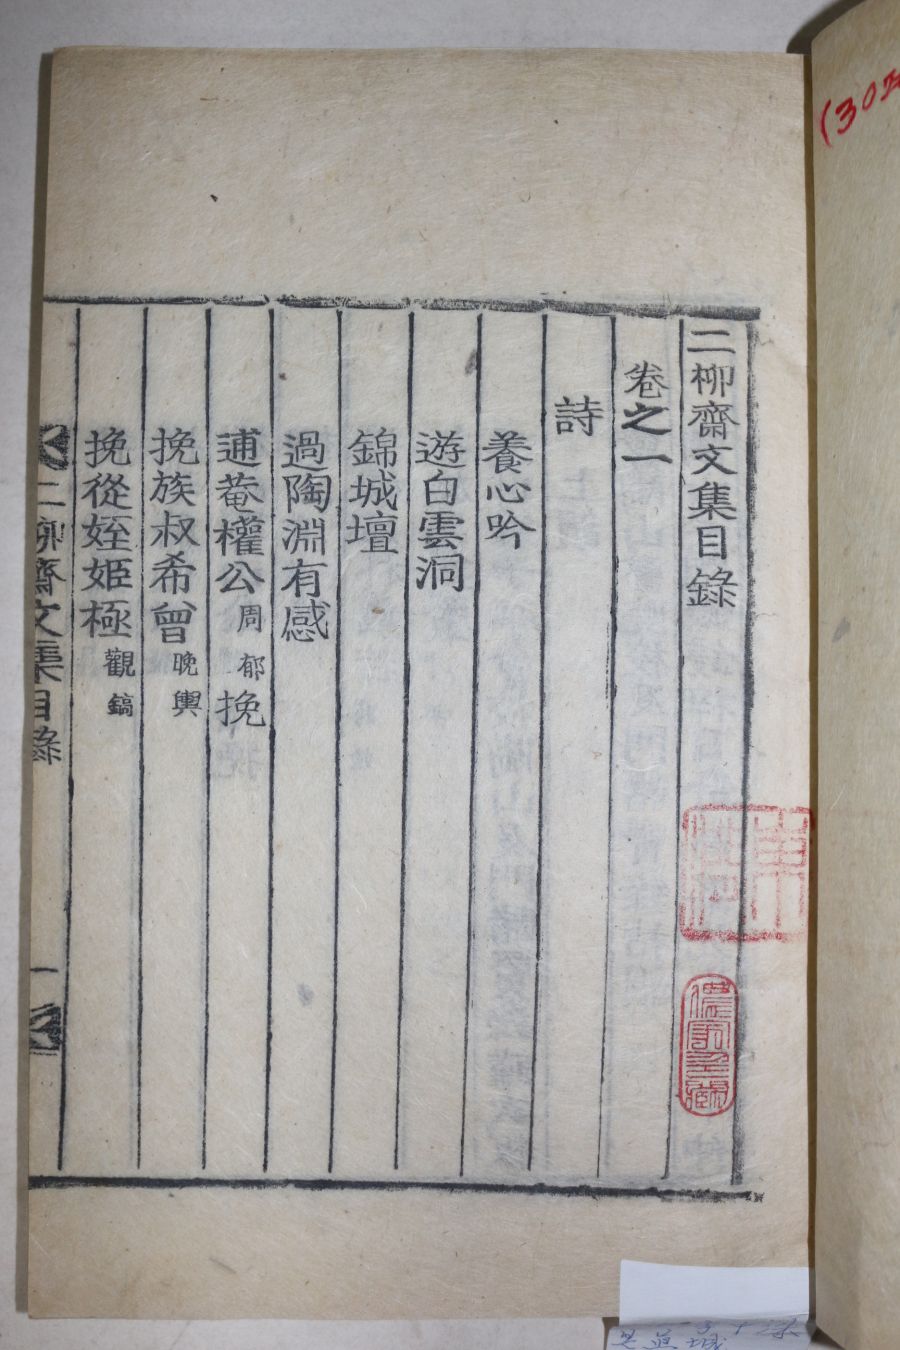 二柳齋文集目錄
卷之一
詩
養心吟
遊白雲洞
錦城壇
過陶淵有感
逋菴權公周郁挽
挽族叔希曾晚輿
挽從姪姬極觀鎬
二柳齋文集目錄
一
(30